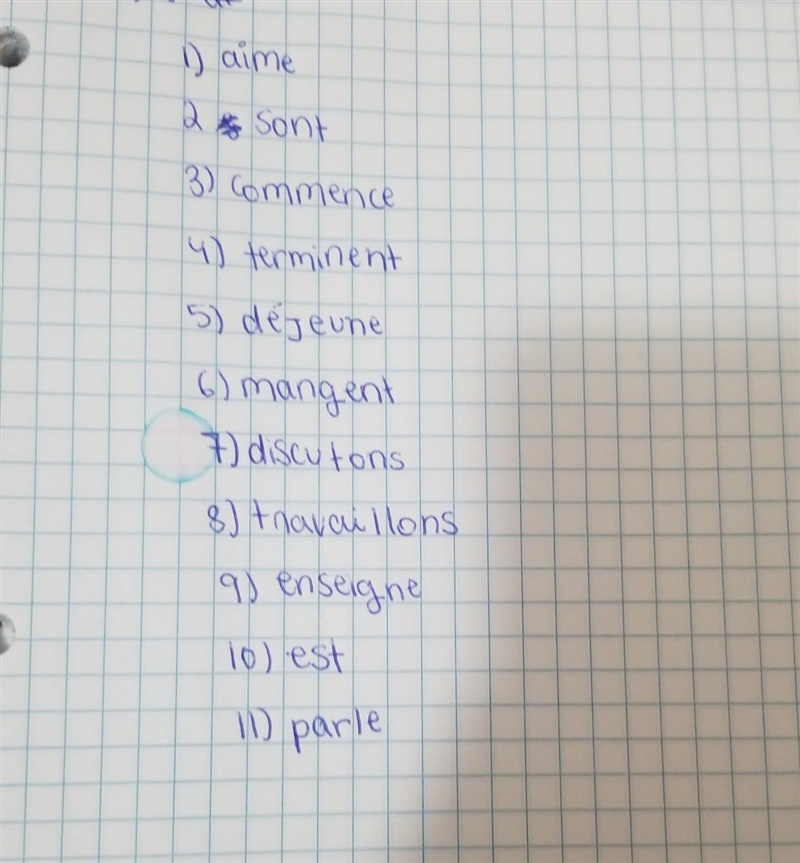 1) aime
2 sont
3) commence
4) terminent
5) déjeune
6) mangent
7) discutons
8) travaillons
9) enseigne
10) est
11) parle